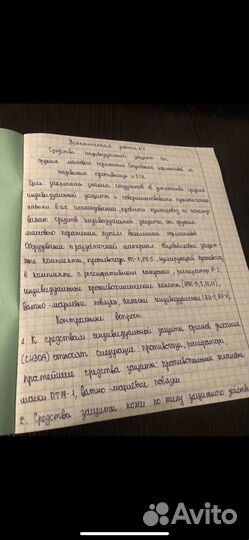 Практическая работа №
Средства индивидуальной защиты от
оружия массового поражения. Отработка нормативов по
надеванию противогаза и ОЗК
Цель: закрепить знания студентов об устройстве средств
индивидуальной защиты и совершенствовать практические
навыки в их использовании, провести тренировку по использо
ванию средств индивидуальной защиты от оружия
массового поражения путём выполнения нормативов
Оборудование и раздаточный материал: Общевойсковые защит
ные комплекты, противогазы
в комплекте с патроном, респиратор Р-2,
индивидуальные противохимические пакеты
ватно-марлевые повязки, аптечки индивидуальные
Контрольные вопросы
1. К средствам индивидуальной защиты органов дыхания
(СИЗОД) относят следующие: противогазы, респираторы,
простейшие средства защиты: противопыльные тканевые
маски ПТМ-1, ватно-марлевые повязки
2. Средства защиты кожи по типу защитного действ
Avito